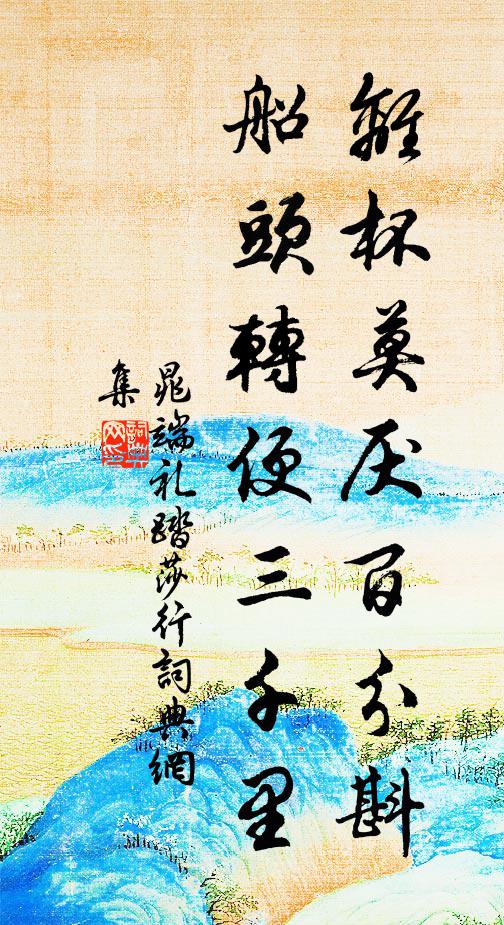 離杯莫厌百分斟
船頭轉便三千里
晁端礼踏莎行詞典網
集